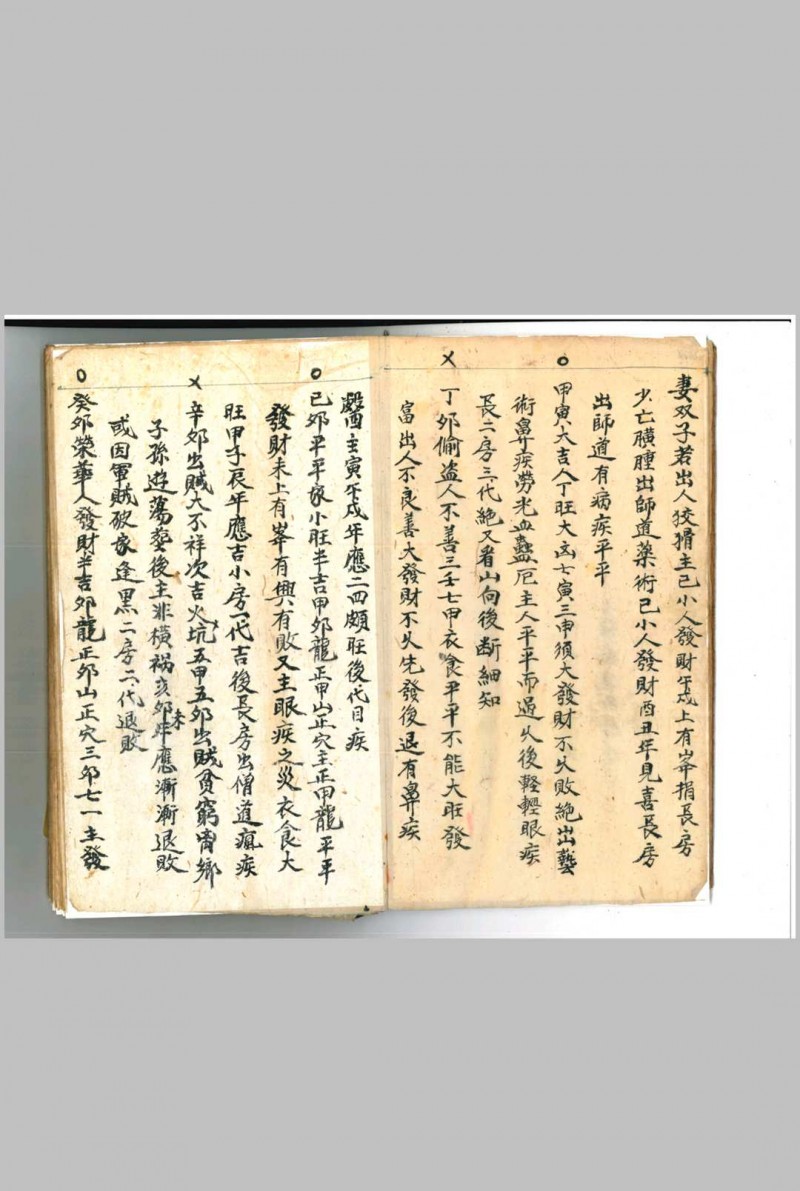 妻双子若出人狡猾主己小人發財午戌上有峯損長房
少亡膶腫出師道藥術己小人發財酉丑年見喜長房
出師道有病疾平平
○
甲寅大吉人丁旺大凶七寅三申須大發財不久敗絕出藝
術鼻疾勞光血蠱厄主人平平而過久後輕輕眼疾
長二房三代絕又看山向後断細知
×
丁夘偷盗人不善三壬七甲衣食平平不能大旺發
富出人不良善大發財不久先發後退有鼻疾
主寅午戌年應二四頗旺後代目疾
○
己夘平平家小旺半吉甲夘龍正甲山正穴主正甲龍平平
發財未上有峯有興有敗又主眼疾之災衣食大
旺甲子辰年應吉小房一代吉後長房出僧道瘋疾
×
辛夘出賊大不祥次吉火坑五甲五夘出賊貧窮离鄉
子孫遊蕩後主非橫禍亥夘未年應漸漸退敗
或因軍賊破家逢黑二房二代退敗
○
癸夘榮華人發財半吉夘龍正夘山正穴三夘七一主發